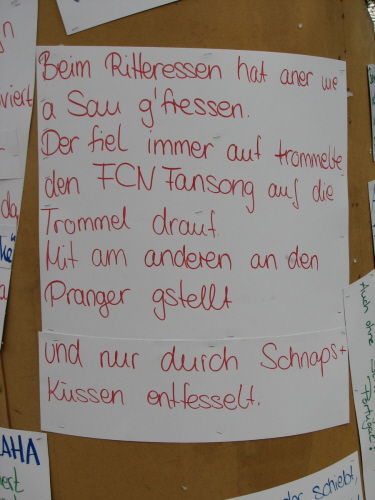 gn
viert
Beim Ritteressen hat aner wie
a Sau g'fressen.
Der fiel immer auf trommelte
den FCN Fansong auf die
Trommel drauf
Mit am anderen an den
Pranger gstellt
und nur durch Schnaps+
Küssen entfesselt.
da
AHA
auch ohne
schiebt,